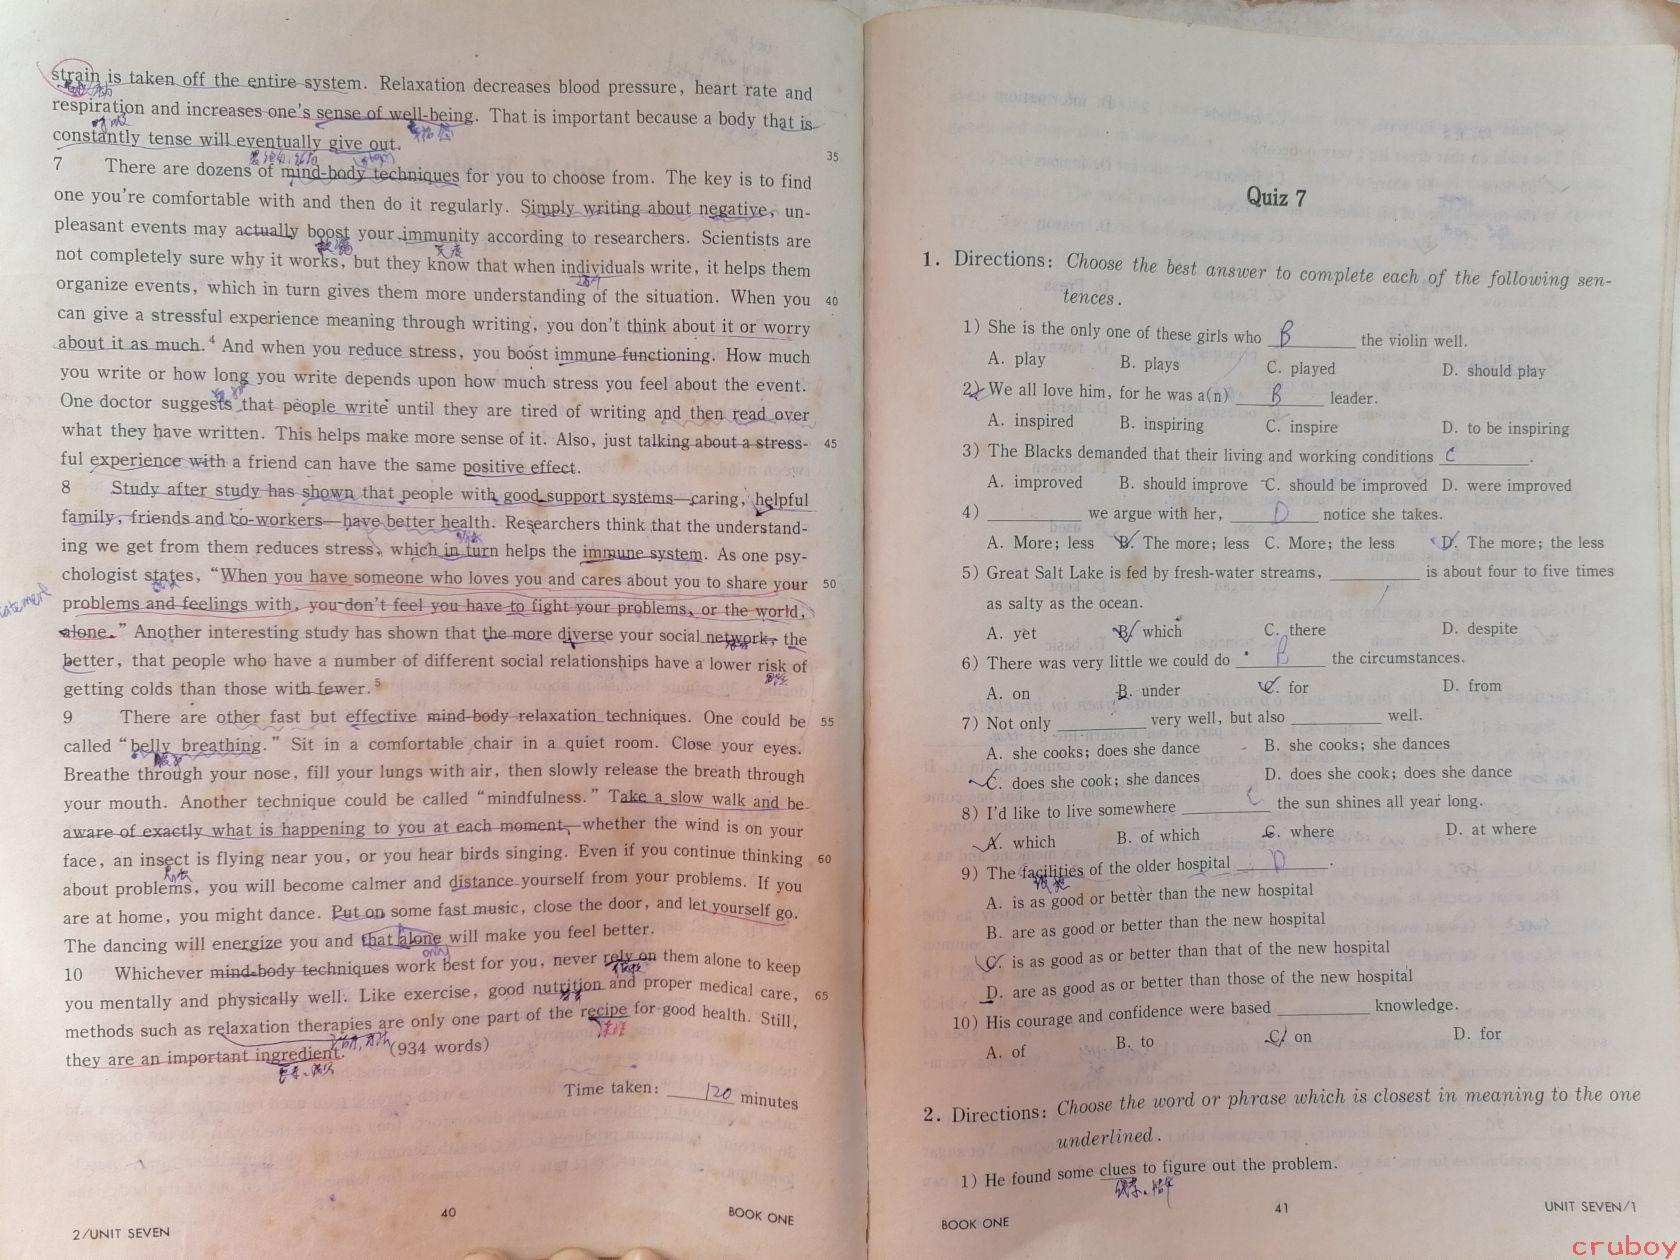 strain is taken off the entire system. Relaxation decreases blood pressure, heart rate and
respiration and increases one's sense of well-being. That is important because a body that is
constantly tense will eventually give out.
35
7 There are dozens of mind-body techniques for you to choose from. The key is to find
one you're comfortable with and then do it regularly. Simply writing about negative, un-
pleasant events may actually boost your immunity according to researchers. Scientists are
not completely sure why it works, but they know that when individuals write, it helps them
organize events, which in turn gives them more understanding of the situation. When you 40
can give a stressful experience meaning through writing, you don't think about it or worry
about it as much.⁴ And when you reduce stress, you boost immune functioning. How much
you write or how long you write depends upon how much stress you feel about the event.
One doctor suggests that people write until they are tired of writing and then read over
what they have written. This helps make more sense of it. Also, just talking about a stress- 45
ful experience with a friend can have the same positive effect.
8 Study after study has shown that people with good support systems—caring, helpful
family, friends and co-workers—have better health. Researchers think that the understand-
ing we get from them reduces stress, which in turn helps the immune system. As one psy-
chologist states, "When you have someone who loves you and cares about you to share your 50
problems and feelings with, you don't feel you have to fight your problems, or the world,
alone." Another interesting study has shown that the more diverse your social network, the
better, that people who have a number of different social relationships have a lower risk of
getting colds than those with fewer.⁵
9 There are other fast but effective mind-body relaxation techniques. One could be 55
called "belly breathing." Sit in a comfortable chair in a quiet room. Close your eyes.
Breathe through your nose, fill your lungs with air, then slowly release the breath through
your mouth. Another technique could be called "mindfulness." Take a slow walk and be
aware of exactly what is happening to you at each moment, whether the wind is on your
face, an insect is flying near you, or you hear birds singing. Even if you continue thinking 60
about problems, you will become calmer and distance yourself from your problems. If you
are at home, you might dance. Put on some fast music, close the door, and let yourself go.
The dancing will energize you and that alone will make you feel better.
only
10 Whichever mind-body techniques work best for you, never rely on them alone to keep
you mentally and physically well. Like exercise, good nutrition and proper medical care, 65
methods such as relaxation therapies are only one part of the recipe for good health. Still,
they are an important ingredient. (934 words)
Time taken: 120 minutes
2/UNIT SEVEN 40 BOOK ONE
Quiz 7
1. Directions: Choose the best answer to complete each of the following sen-
tences.
1) She is the only one of these girls who B the violin well.
A. play B. plays C. played D. should play
2) We all love him, for he was a(n) B leader.
A. inspired B. inspiring C. inspire D. to be inspiring
3) The Blacks demanded that their living and working conditions C.
A. improved B. should improve C. should be improved D. were improved
4) ________ we argue with her, D notice she takes.
A. More; less B. The more; less C. More; the less D. The more; the less
5) Great Salt Lake is fed by fresh-water streams, ________ is about four to five times
as salty as the ocean.
A. yet B. which C. there D. despite
6) There was very little we could do B the circumstances.
A. on B. under C. for D. from
7) Not only ________ very well, but also ________ well.
A. she cooks; does she dance B. she cooks; she dances
C. does she cook; she dances D. does she cook; does she dance
8) I'd like to live somewhere C the sun shines all year long.
A. which B. of which C. where D. at where
9) The facilities of the older hospital D.
A. is as good or better than the new hospital
B. are as good or better than the new hospital
C. is as good as or better than that of the new hospital
D. are as good as or better than those of the new hospital
10) His courage and confidence were based ________ knowledge.
A. of B. to C. on D. for
2. Directions: Choose the word or phrase which is closest in meaning to the one
underlined.
1) He found some clues to figure out the problem.
BOOK ONE 41 UNIT SEVEN/1
cruboy